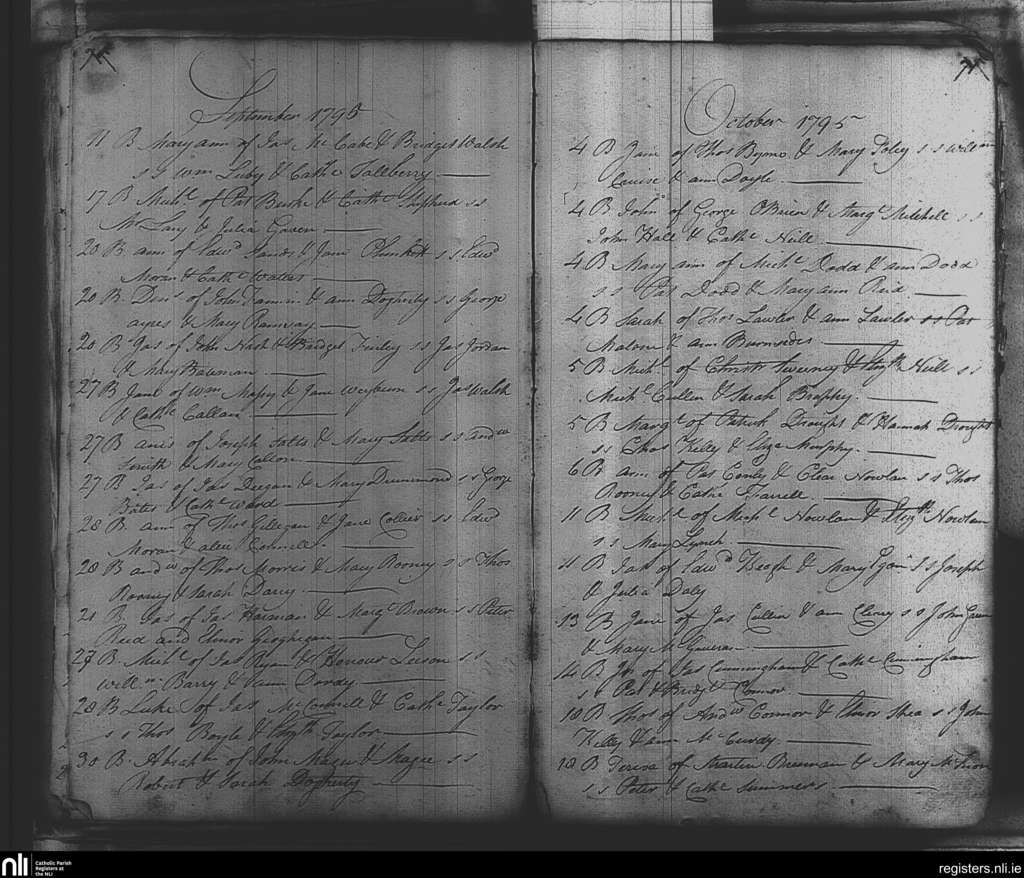 September 1795
11 B Maryann of Jas Mc Cabe & Bridget Walsh
s s Wm Luby & Cathe Sallberry
17 B Michl of Pat Burke & Cathe Shepherd s s
Lacy & Julia Gaven
20 B ann of Edwd & Jane Plunkett s s Edwd
Moran & Cathe Walters
20 B Denis of John & ann Dogherty s s George
ayres & Mary Ramsay
20 B Jas of John Nash & Bridget Finley s s Jas Jordan
& Mary Bateman
27 B Jane of Wm & Jane s s Jas Walsh
& Cathe Callan
27 B of Joseph & Mary s s andw
Smith & Mary Callon
27 B Jas of Jas Deegan & Mary Drummond s s George
Bates & Cath Ward
28 B ann of Thos Gillegan & Jane Collier s s Edwd
Moran & alice Connell
28 B andw of Thos Morris & Mary Rooney s s Thos
Rooney & Sarah Darcy
21 B Jas of Jas & Margt Brown s s Peter
Reid and Elinor Geoghegan
27 B Michl of Jas Ryan & Honour s s
Willm Barry & ann
28 B Luke of Jas McConnell & Cathe Taylor
s s Thos Boyle & Elizth Taylor
30 B Abrahm of John Magee & Magee s s
Robert & Sarah Dogherty
October 1795
4 B Jane of Thos Byrne & Mary Foley s s Willm
Cruise & ann Doyle
4 B John of George OBrien & Margt Mitchell s s
John Hall & Cathe Neill
4 B Mary ann of Michl Dodd & ann Dodd
s s Pat Dodd & Mary ann Reid
4 B Sarah of Thos Lawler & ann Lawler s s Pat
Malone & ann Burnsides
5 B Michl of Christr Sweeney & Elizth Neill s s
Michl Cullen & Sarah Brophy
5 B Margt of Patrick Drought & Hannah Drought
s s Thos Kelly & Eliza Murphy
6 B ann of Pat Conley & Elear Nowlan s s Thos
Rooney & Cathe Farrell
11 B Michl of Michl Nowlan & Elizth Nowlan
s s Mary Lynch
11 B Jas of Edwd Keogh & Mary Egan s s Joseph
& Julia Daly
13 B Jane of Jas Cullen & ann Cleney s s John
& Mary McGueran
14 B Js of Jas Cunningham & Cathe Cunningham
s s Pat & Bridgt Connor
18 B Thos of Andw Connor & Elinor Shea s s John
Kelly & ann McCurdy
18 B Teresa of Martin Brennan & Mary
s s Peter & Cathe Summers
nli
Catholic Parish
Registers at
the NLI
registers.nli.ie